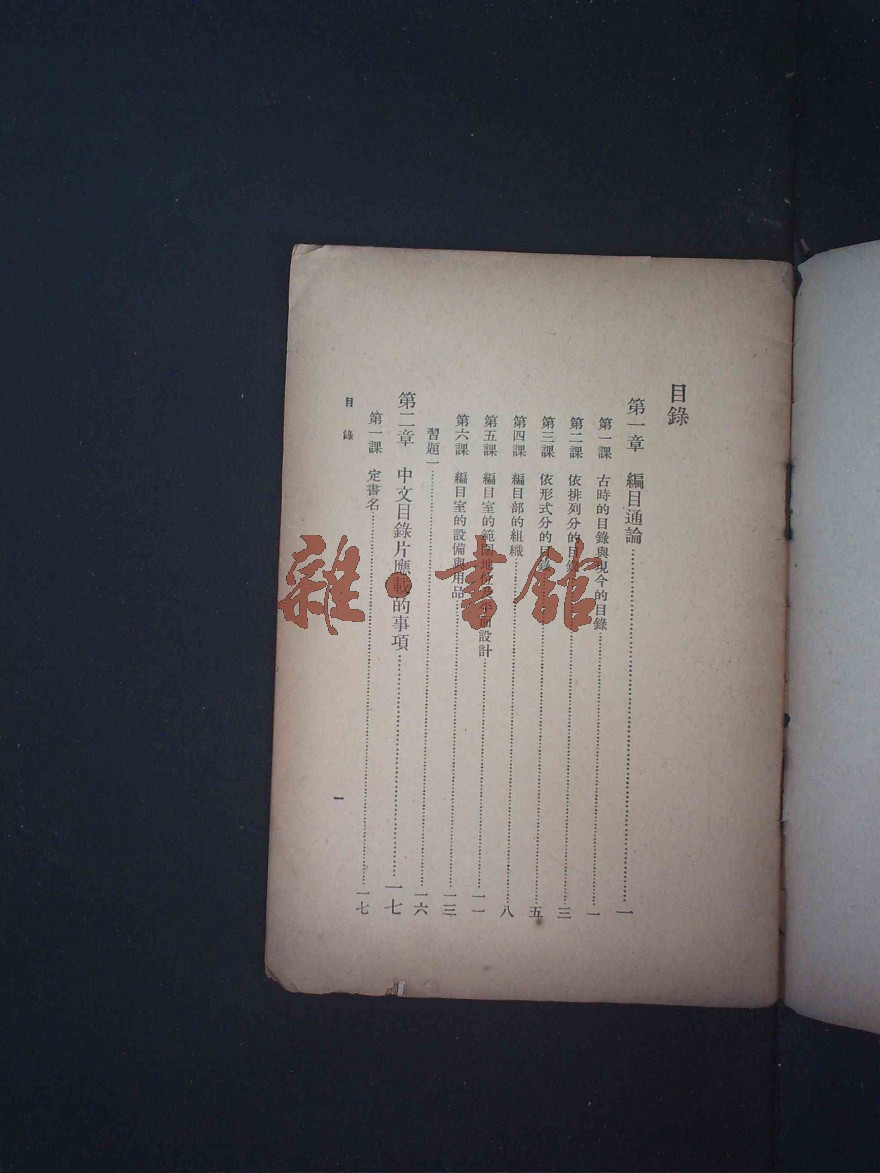 目錄
第一章 編目通論……一
第一課 古時的目錄與現今的目錄……一
第二課 依排列分的目錄……三
第三課 依形式分的目錄……五
第四課 編目部的組織……八
第五課 編目室的範圍地位 面設計……一一
第六課 編目室的設備與用品……一三
習題一……一六
第二章 中文目錄片應載的事項……一七
第一課 定書名……一七
目錄
一
雜·書館